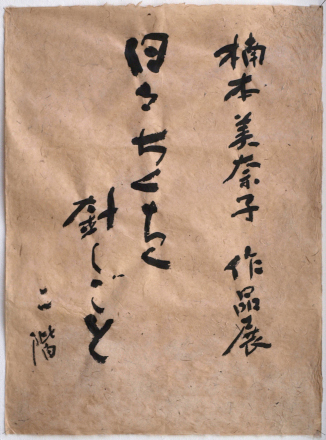 楠本美奈子 作品展
日々ちくちく
針しごと
二階